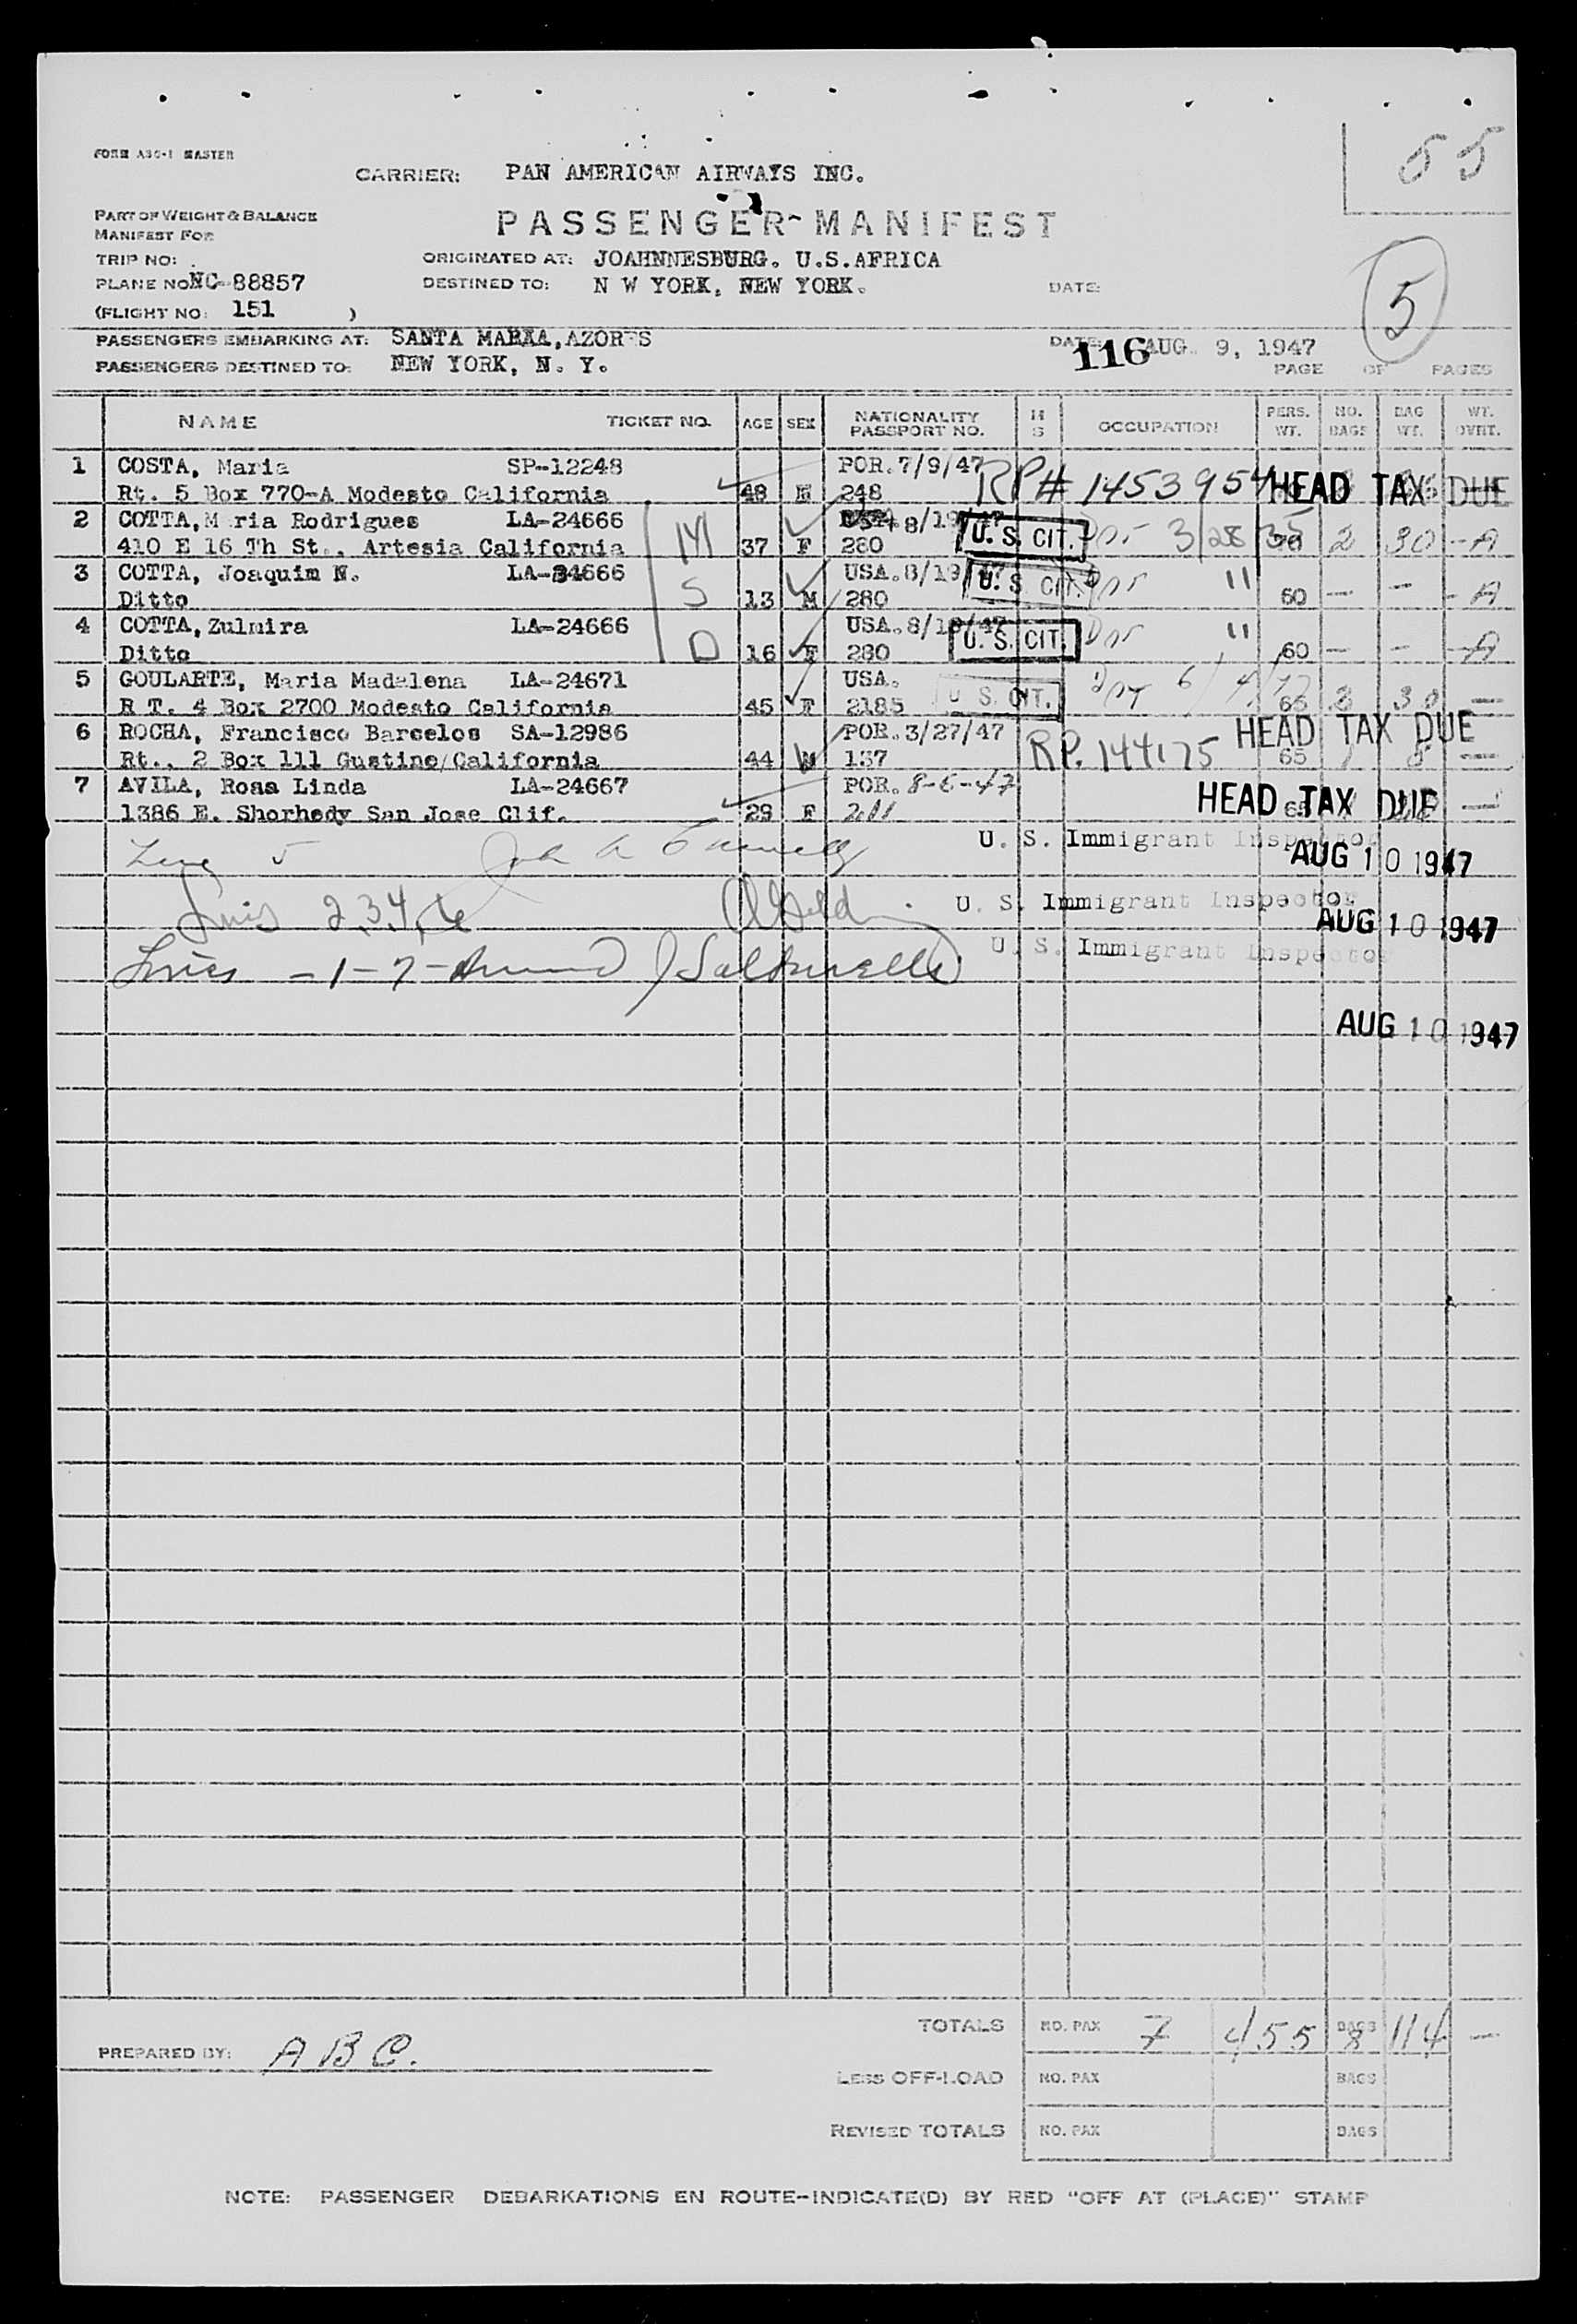 55
FORM ASC-1 MASTER
CARRIER: PAN AMERICAN AIRWAYS INC.
PART OF WEIGHT & BALANCE
MANIFEST FOR
PASSENGER MANIFEST
TRIP NO:
ORIGINATED AT: JOAHNNESBURG. U.S.AFRICA
PLANE NO: NC-88857
DESTINED TO: N W YORK, NEW YORK.
DATE:
5
(FLIGHT NO: 151 )
PASSENGERS EMBARKING AT: SANTA MARIA, AZORES
DATE: AUG. 9, 1947
116
PASSENGERS DESTINED TO: NEW YORK, N. Y.
PAGE OF PAGES
NAME TICKET NO. AGE SEX NATIONALITY PASSPORT NO. OCCUPATION PERS. WT. NO. BAGS BAG WT. WT. OVRT.
1 COSTA, Maria SP-12248 POR. 7/9/47 RP# 1453954 HEAD TAX DUE
Rt. 5 Box 770-A Modesto California 48 248
2 COTTA, M ria Rodrigues LA-24666 8/19/47 U. S. CIT. 3/28/35
410 E 16 Th St., Artesia California M 37 F 280 2 30 - A
3 COTTA, Joaquim N. LA-24666 USA. 8/19/47 U. S. CIT. "
Ditto S 13 M 280 60 — — - A
4 COTTA, Zulmira LA-24666 USA. 8/19/47 U. S. CIT. "
Ditto D 16 F 280 60 — — - A
5 GOULARTE, Maria Madalena LA-24671 USA. U. S. CIT.
R T. 4 Box 2700 Modesto California 45 F 2185 65 3 30 —
6 ROCHA, Francisco Barcelos SA-12986 POR. 3/27/47 RP. 144175 HEAD TAX DUE
Rt., 2 Box 111 Gustine/California 44 M 137 65 1 —
7 AVILA, Rosa Linda LA-24667 POR. 8-6-47 HEAD TAX DUE
1386 E. Shorhedy San Jose Clif. 29 F 211 65 —
Line 5
U. S. Immigrant Inspector
AUG 10 1947
Lines 2,3,4,6
U. S. Immigrant Inspector
AUG 10 1947
Lines - 1 - 7 -
U. S. Immigrant Inspector
AUG 10 1947
TOTALS NO. PAX 7 455 BAGS 8 114 —
PREPARED BY: A B C.
LESS OFF-LOAD NO. PAX BAGS
REVISED TOTALS NO. PAX BAGS
NOTE: PASSENGER DEBARKATIONS EN ROUTE--INDICATE(D) BY RED "OFF AT (PLACE)" STAMP